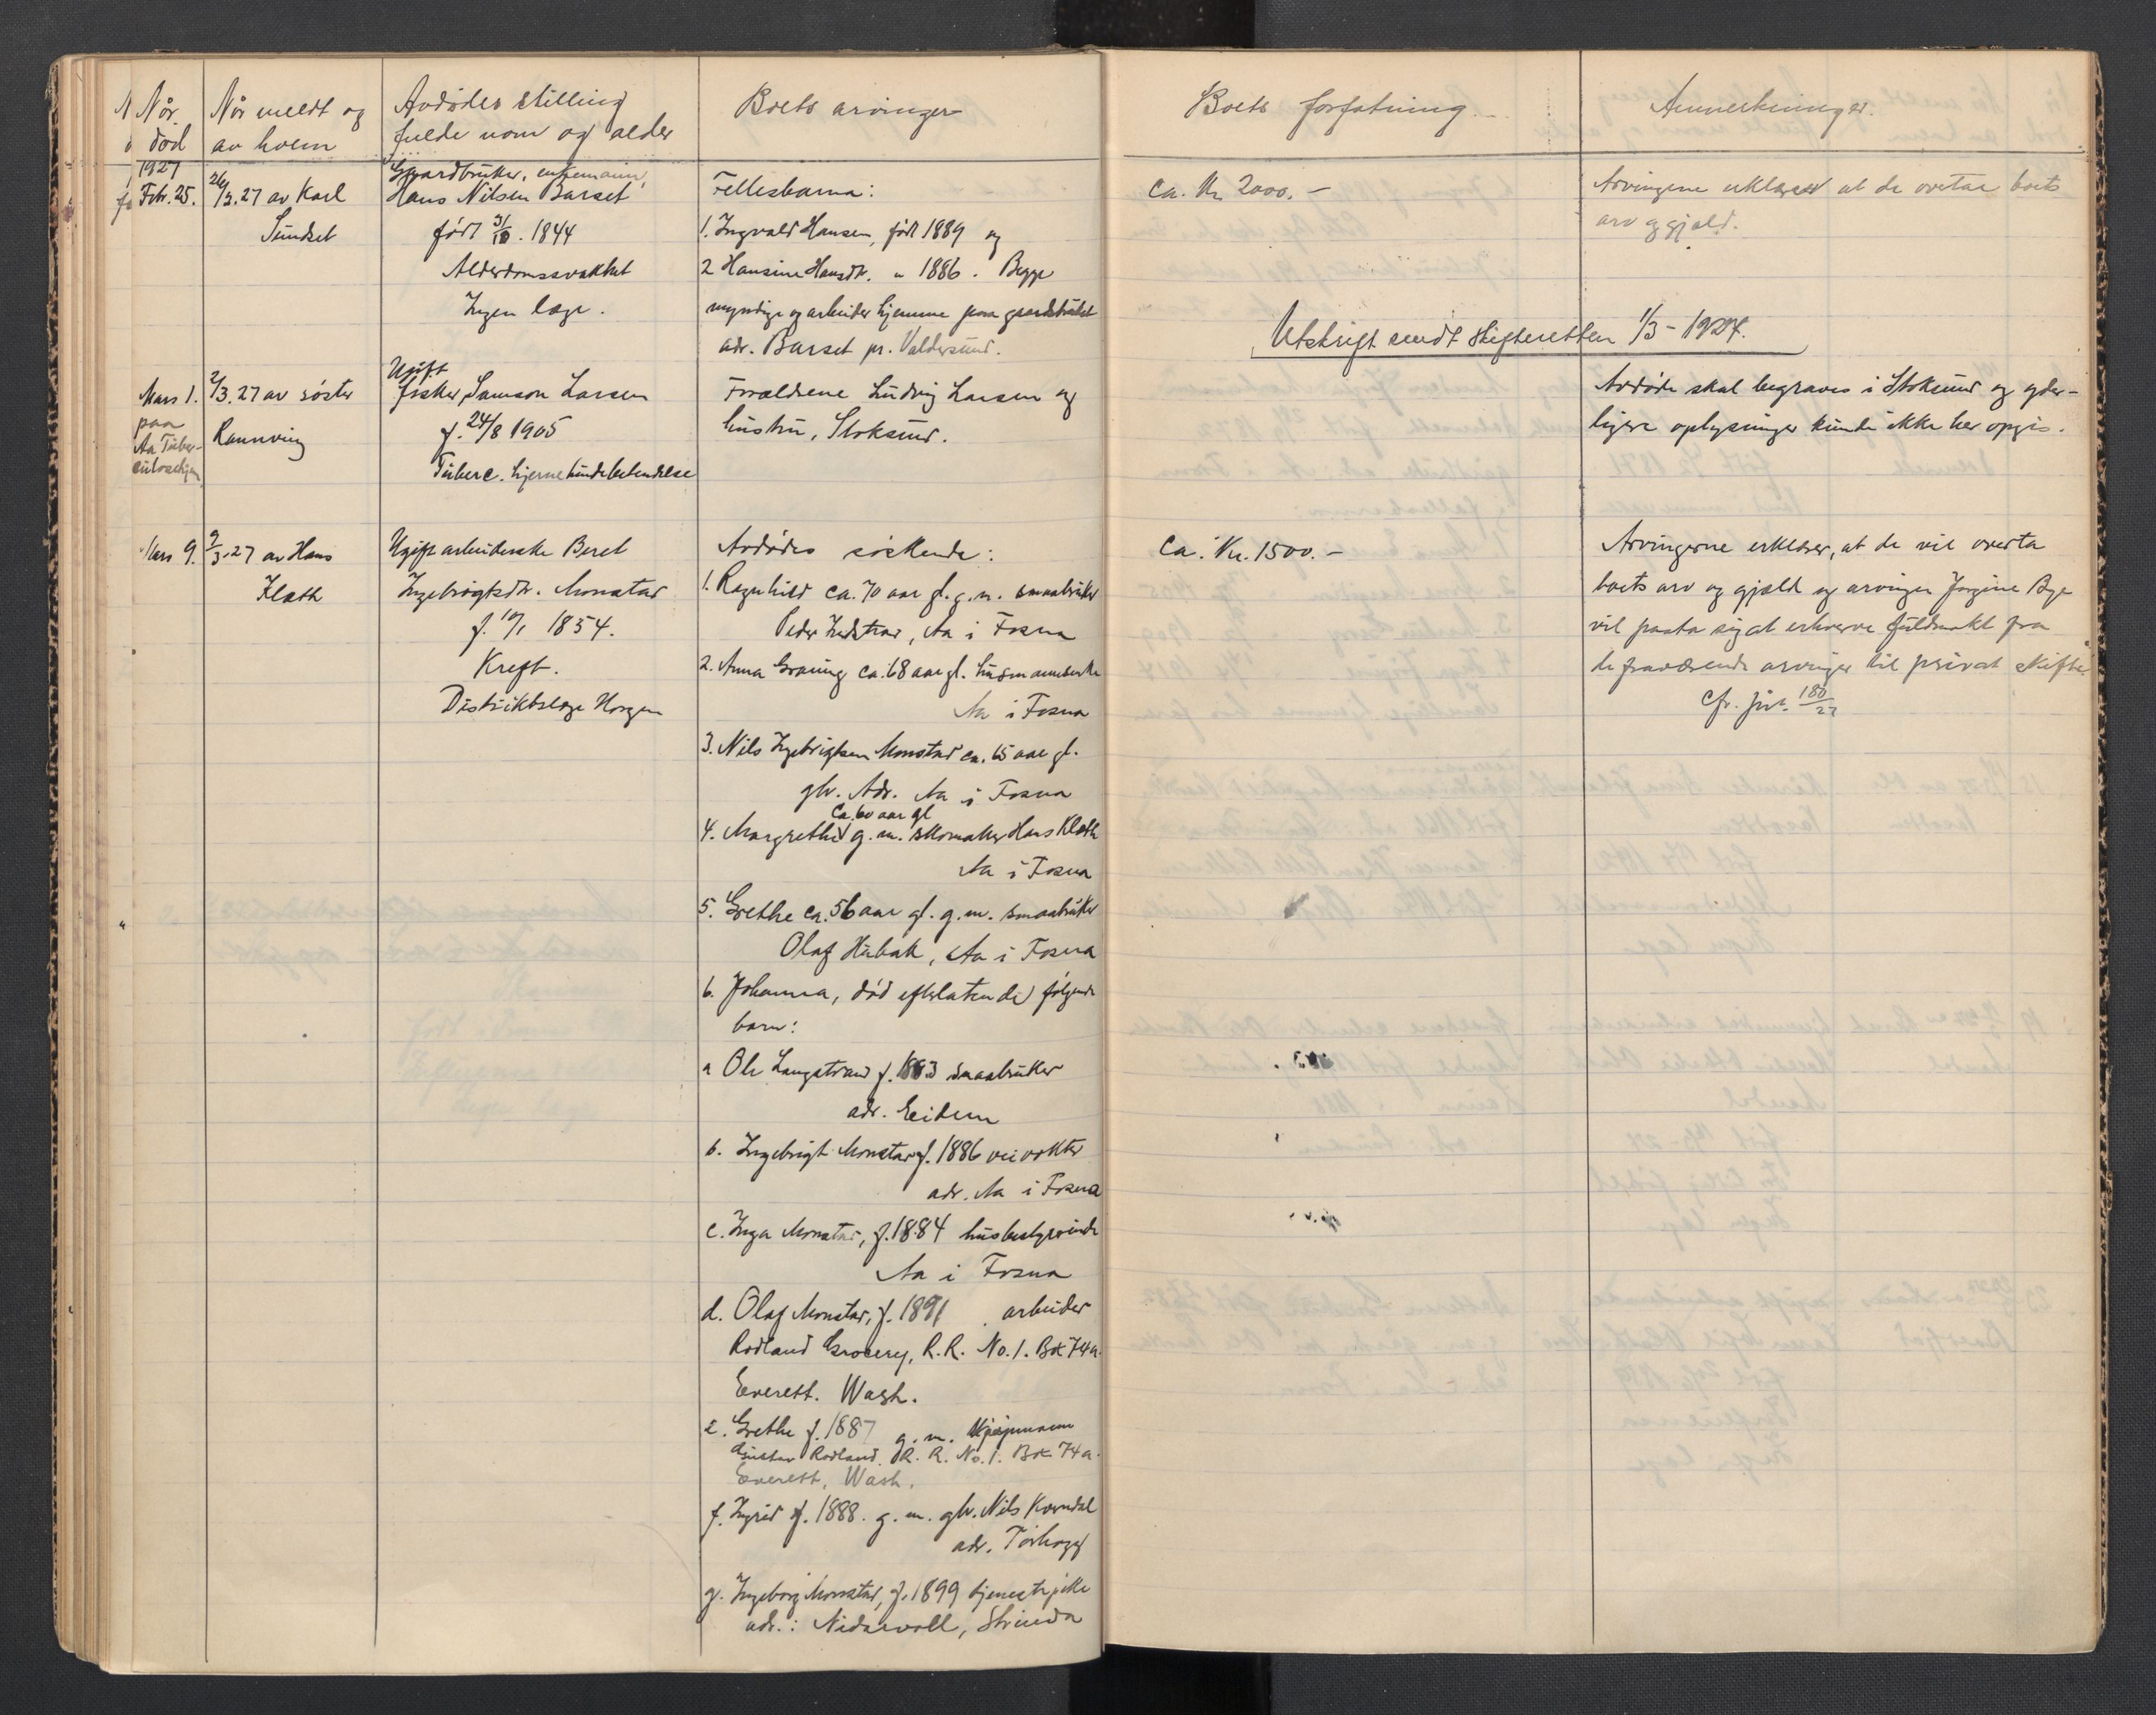 Når
død
Når meldt og
av hvem
Avdødes stilling
fulde navn og alder
Boets arvinger
Boets forfatning
Anmerkninger.
1927
Febr. 25.
26/2.27 av Karl
Sundset
Gaardbruker, enkemann,
Hans Nilsen Barset
født 3/10. 1844
Alderdomssvakhet
Ingen læge.
Fellesbarna:
1. Ingvald Hansen, født 1889 og
2 Hansine Hansdtr. " 1886. Begge
myndige og arbeider hjemme paa gaardsbruket
adr. Barset pr. Valdersund.
Ca. Kr. 2000.-
Arvingene erklærer at de overtar boets
arv og gjeld.
Utskrift sendt skifteretten 1/3-1927.
Mars 1.
paa
Aa Tuber-
culosehjem
2/3.27 av søster
Rannveig
Ugift
fisker Samson Larsen
f. 24/8 1905
Tuberc. hjernehindebetendelse
Forældrene Ludvig Larsen og
hustru, Stoksund.
Avdøde skal begraves i Stoksund og yder-
ligere oplysninger kunde ikke her opgis.
Mars 9.
9/3.27 av Hans
Klæth
Ugift arbeiderske Beret
Ingebrigtsdtr. Monstad
f. 10/1 1854.
Kreft.
Distriktslæge Horgen
Avdødes søskende:
1. Ragnhild ca. 70 aar gl. g.m. smaabruker
Peder Hedstrøm, Aa i Fosna
2. Anna Graning ca. 68 aar gl. husmannsenke
Aa i Fosna
3. Nils Ingebrigtsen Monstad ca. 65 aar gl.
gbr. Adr. Aa i Fosna
ca. 60 aar gl
4. Margrethe g.m. skomaker Hans Klæth
Aa i Fosna
5. Grethe ca. 56 aar gl. g.m. smaabruker
Olaf Hubak, Aa i Fosna
6. Johanna, død efterlatende følgende
barn:
a Ole Langstrand f. 1883 smaabruker
adr. Eidem
b. Ingebrigt Monstad f. 1886 veivokter
adr. Aa i Fosna
c. Inga Monstad, f. 1884 husbestyrerinde
Aa i Fosna
d. Olaf Monstad, f. 1891 arbeider
Rodland Grocery, R.R. No. 1. Box 74a.
Everett. Wash.
e. Grethe f. 1887 g.m. kjøpmann
Gustav Rodland. R.R. No. 1. Box 74a.
Everett, Wash.
f. Ingrid f. 1888. g.m. gbr. Nils Kverndal
adr. Tørhogg
g. Ingeborg Monstad, f. 1899 tjenestepike
adr.: Nidarvoll, Strinda
Ca. Kr. 1500.-
Arvingerne erklærer, at de vil overta
boets arv og gjæld og arvingen Jørgine Bye
vil paata sig at erhverve fuldmakt fra
de fraværende arvinger til privat skifte.
Cfr. jnr. 180/27